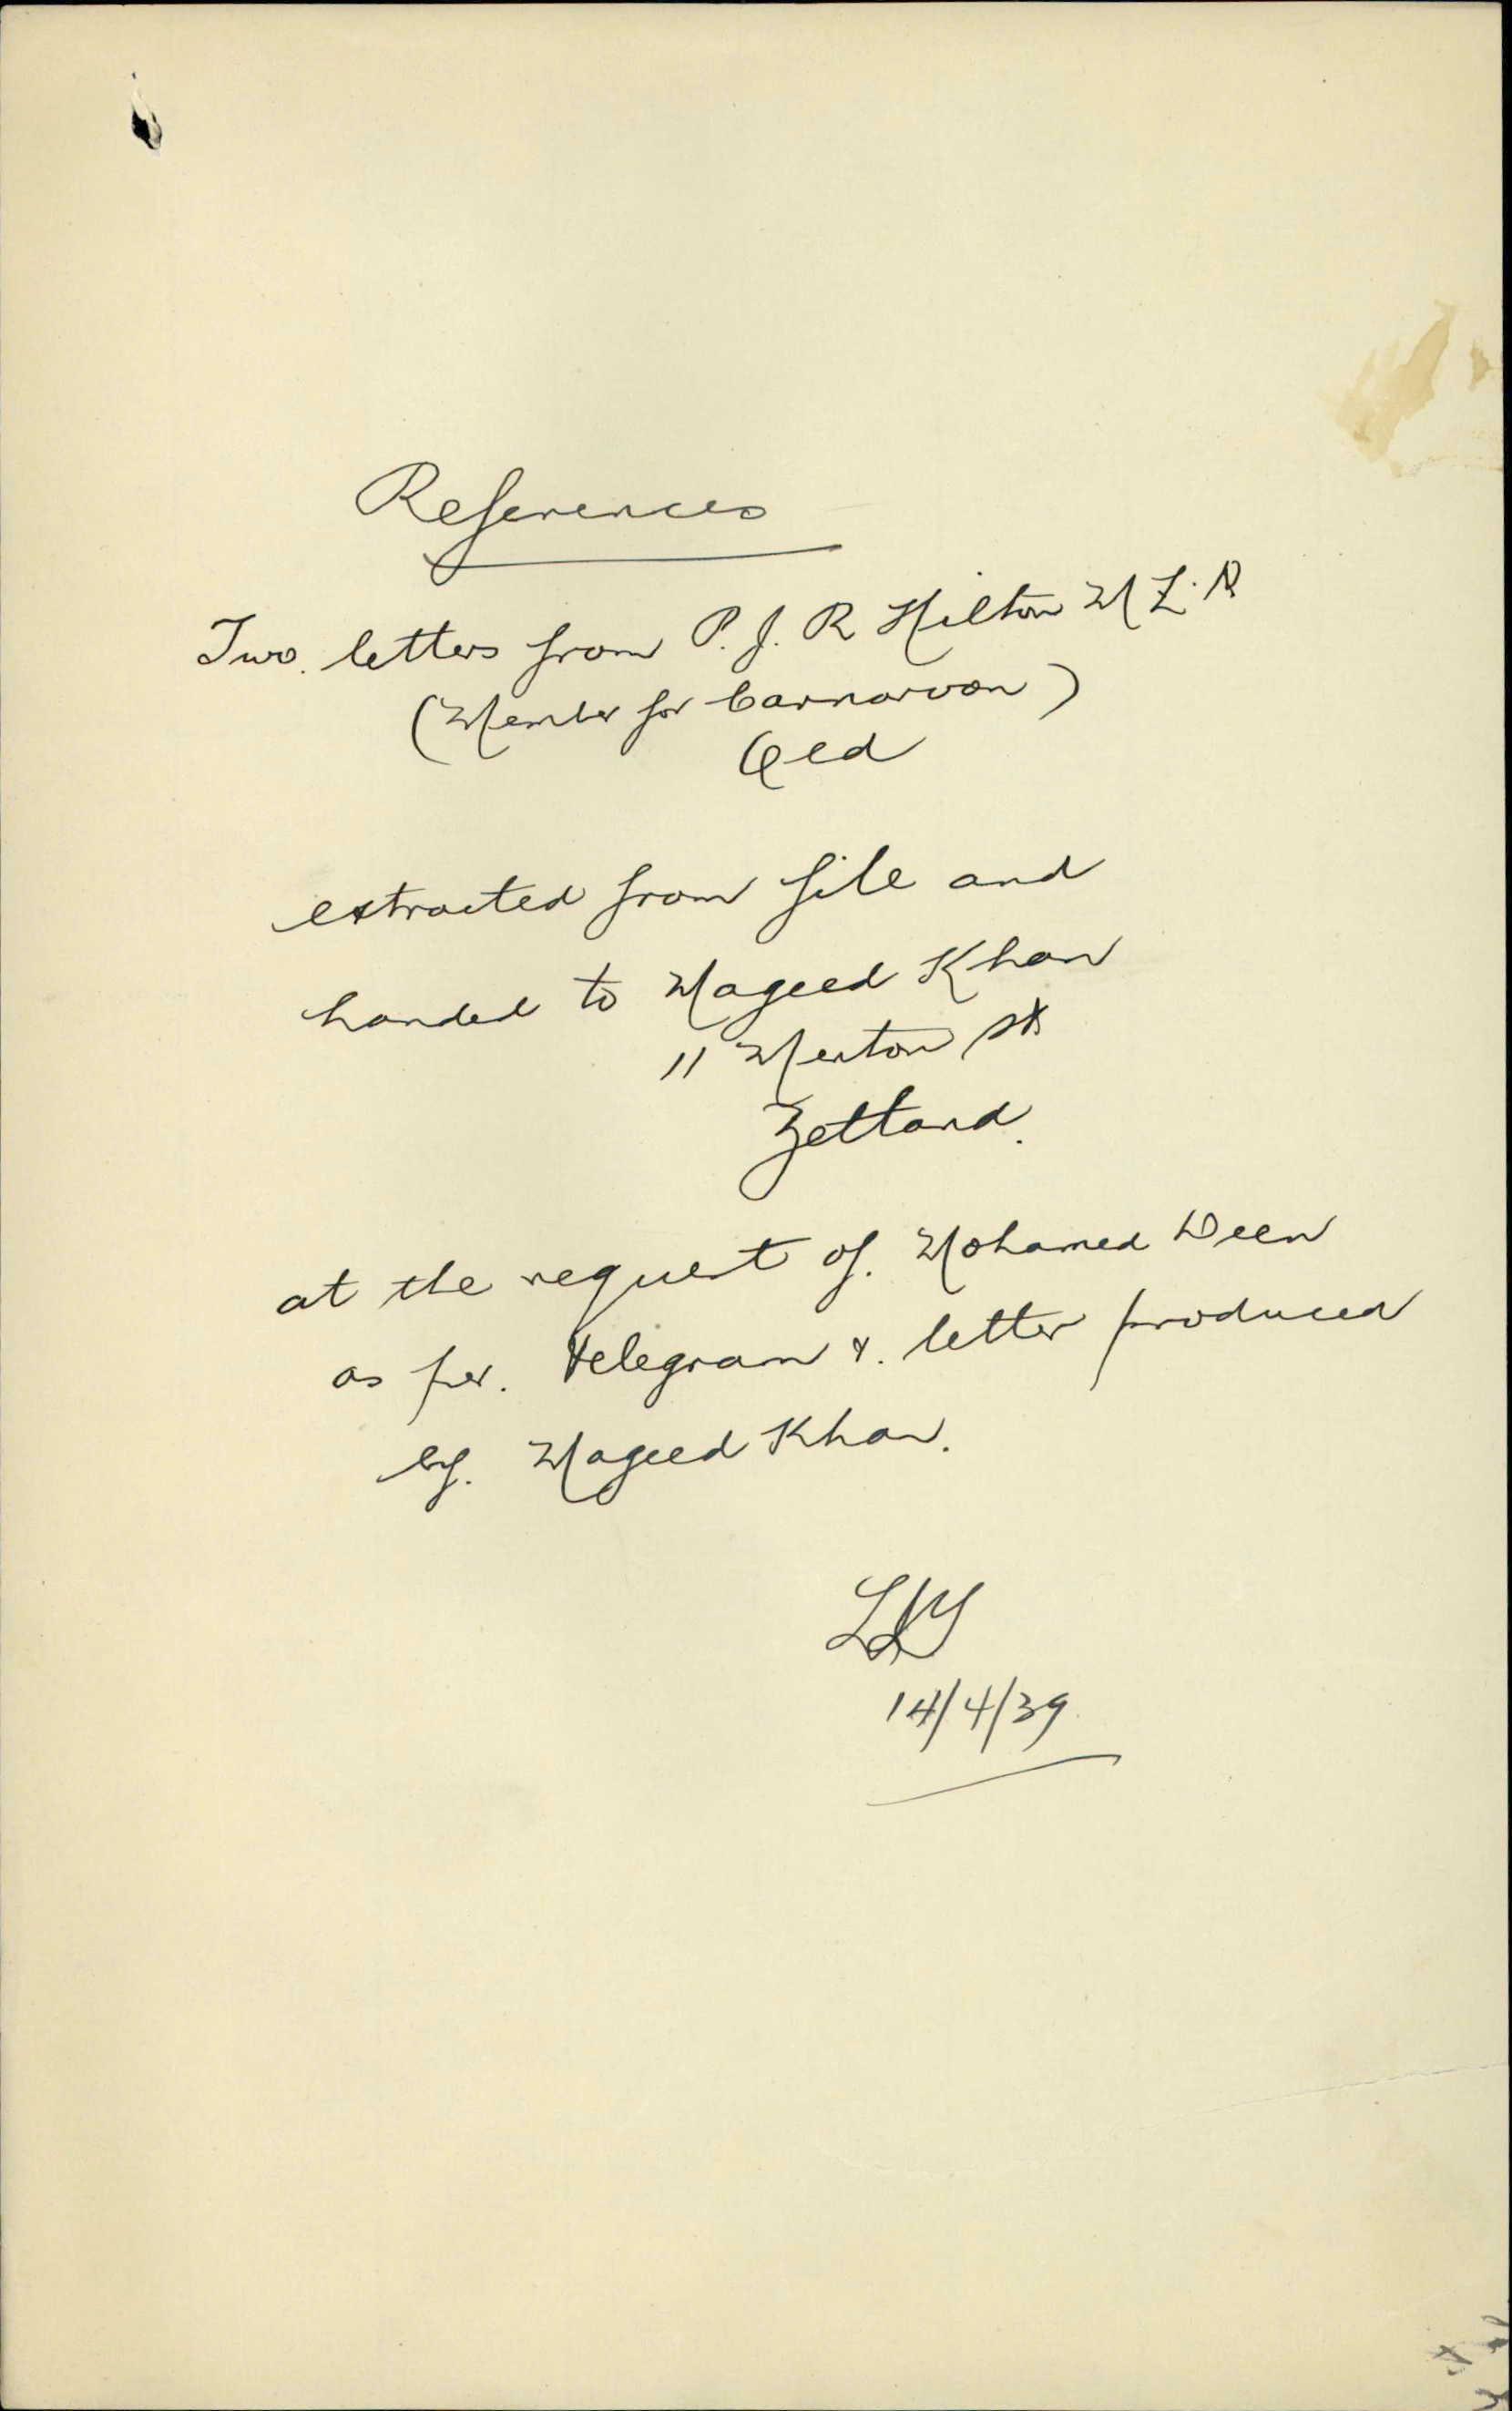 References
Two letters from P. J. R Hilton M L. A
(Member for Carnarvon)
Qld
extracted from file and
handed to Mageed Khan
11 Merton St
Zetland.
at the request of. Mohamed Deen
as per. telegram &. letter produced
by. Mageed Khan.
14/4/39